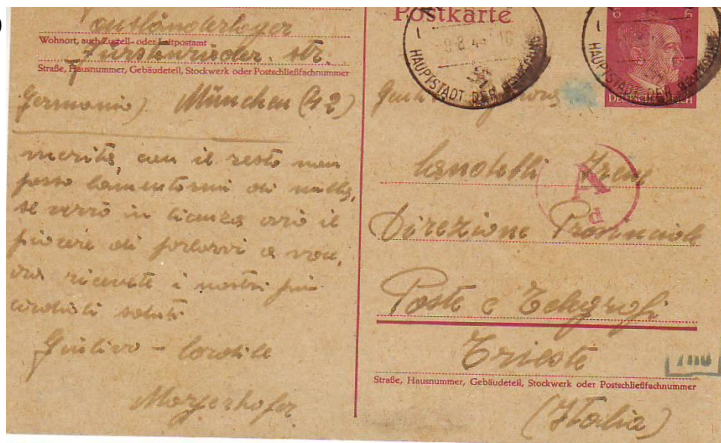 ausländerlager
Wohnort, auch Zustell- oder Leitpostamt
Fürstenrieder. str.
Straße, Hausnummer, Gebäudeteil, Stockwerk oder Postschließfachnummer
Germania) München (42)
merità, con il resto non
posso lamentarmi di nulla,
se verrò in licenza avrò il
piacere di parlarvi a voce,
ora ricevete i nostri più
cordiali saluti
Mayerhofer
Postkarte
HAUPTSTADT DER BEWEGUNG
HAUPTSTADT DER BEWEGUNG
Deutsches Reich
A
d
Direzione Provinciale
Poste e Telegrafi
Trieste
Straße, Hausnummer, Gebäudeteil, Stockwerk oder Postschließfachnummer
(Italia)